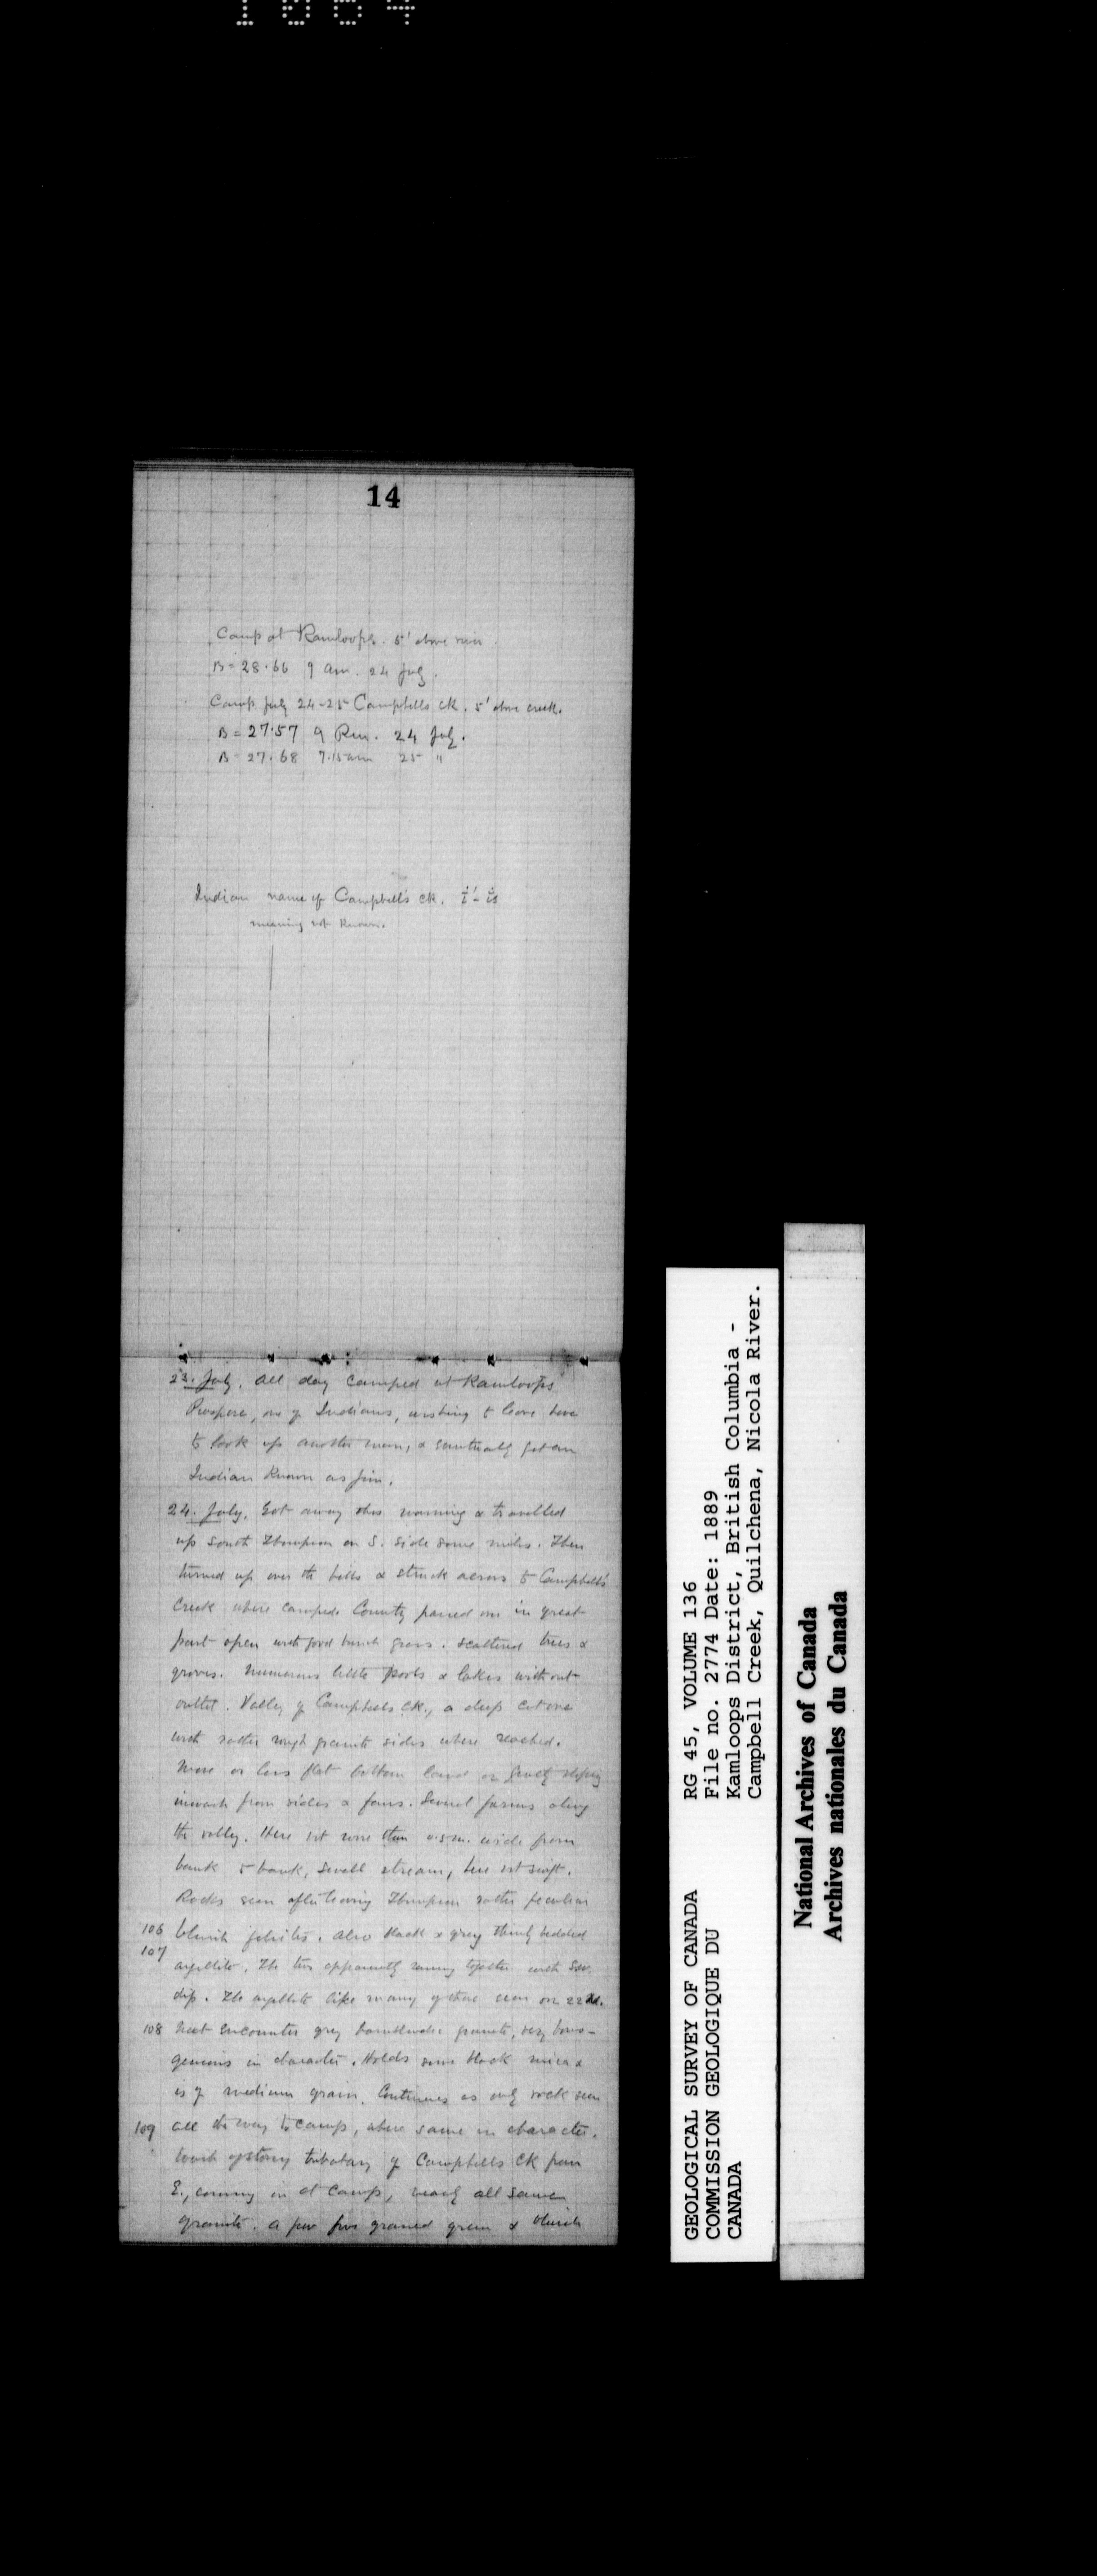 14
Camp at Kamloops. 5' above river
B = 28.66 9 am. 24 July.
Camp July 24-25 Campbells ck. 5' above creek.
B = 27.57 9 Pm. 24 July.
B = 27.68 7.15 am 25 "
Indian name of Campbell's ck.
meaning not known.
23. July. All day camped at Kamloops
Prospere, one of Indians, wishing to leave have
to look up another man, & eventually get an
Indian known as Jim.
24. July. Got away this morning & travelled
up South Thompson on S. side some miles. Then
turned up over the hills & struck across to Campbell's
Creek where camped. Country passed over in great
part open with good bunch grass. scattered trees &
groves. Numerous little pools & lakes without
outlet. Valley of Campbells ck., a deep cut one
with rather rough granite sides where reached.
More or less flat bottom land or gently sloping
inwash from sides & fans. Several farms along
the valley. Here not more than 0.5 m. wide from
bank to bank, small stream, here not swift.
Rocks seen after leaving Thompson rather peculiar
106 bluish felsites. Also black & grey thinly bedded
107 argillite. The two apparently running together with
dip. The argillite like many of those seen on 22nd.
108 Next encounter grey hornblendic granite, very homo-
geneous in character. Holds some black mica &
is of medium grain. Continues as only rock seen
109 all the way to camp, where same in character.
Wash of stony tributary of Campbells ck from
E., coming in at camp, nearly all same
granite. A few fine grained green & bluish
GEOLOGICAL SURVEY OF CANADA
COMMISSION GEOLOGIQUE DU
CANADA
RG 45, VOLUME 136
File no. 2774 Date: 1889
Kamloops District, British Columbia -
Campbell Creek, Quilchena, Nicola River.
National Archives of Canada
Archives nationales du Canada